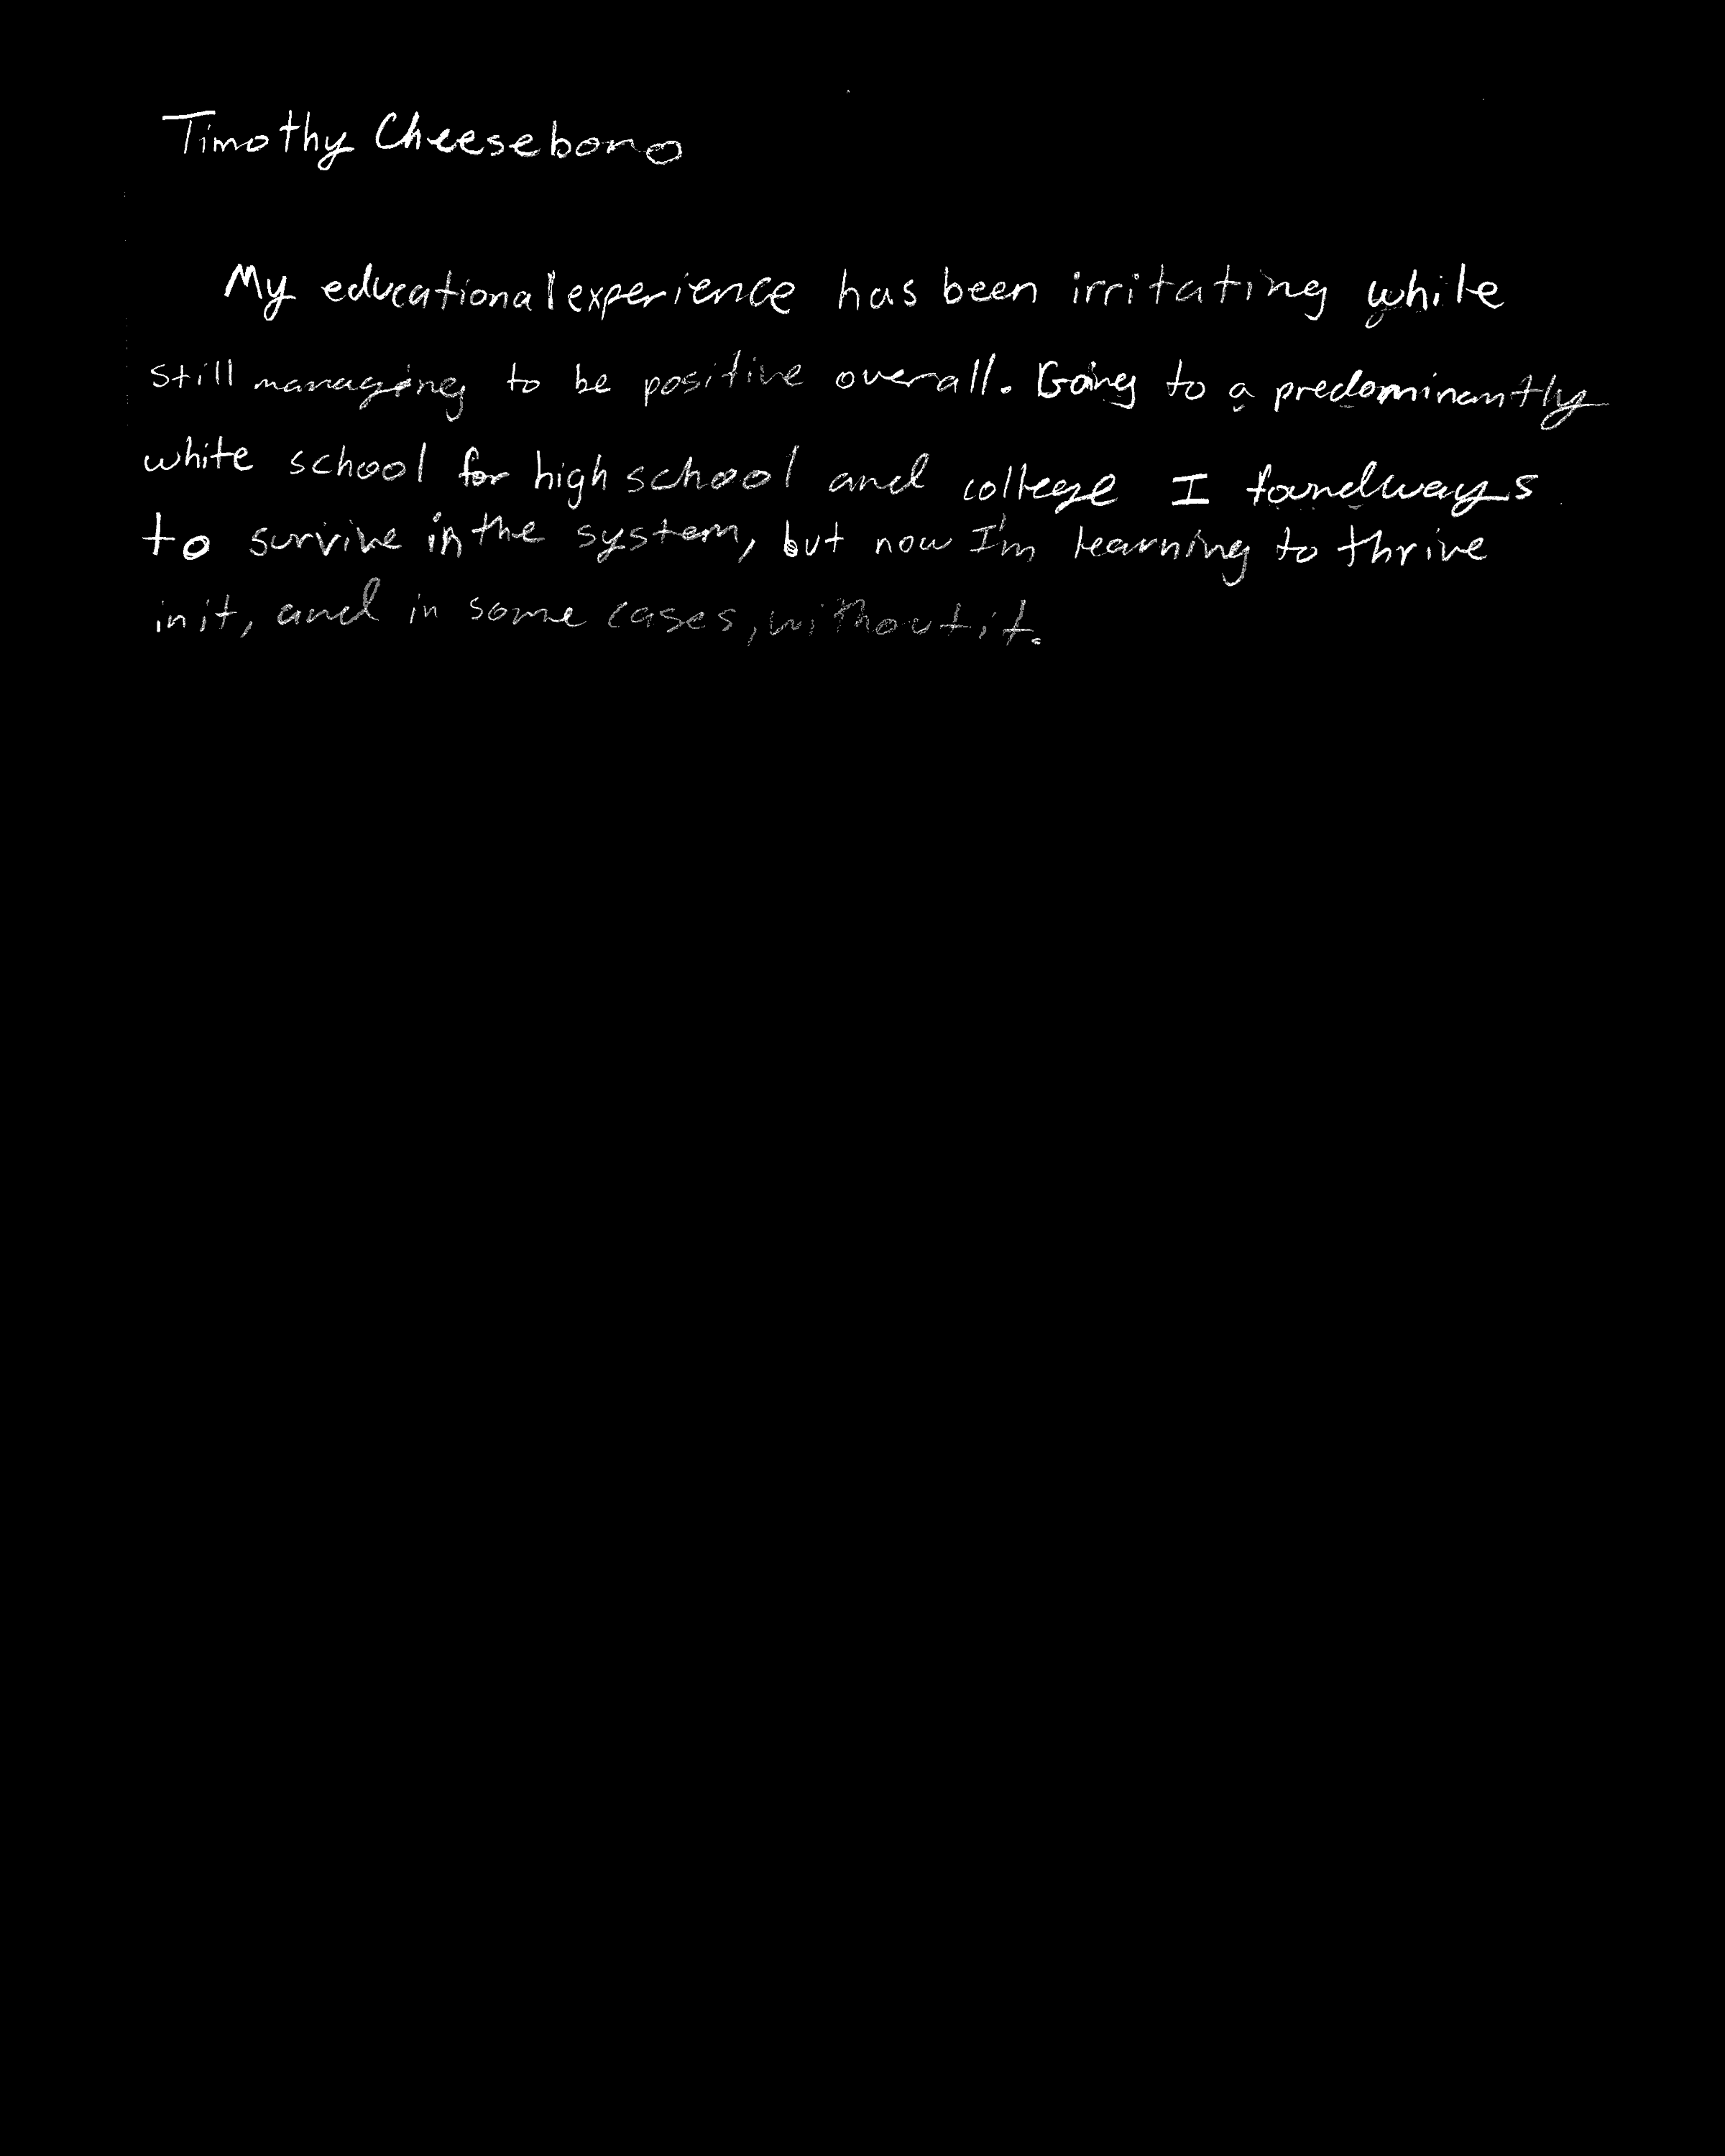 Timothy Cheeseboro
My educational experience has been irritating while
still managing to be positive overall. Going to a predominantly
white school for high school and college I found ways
to survive in the system, but now I'm learning to thrive
in it, and in some cases, without it.